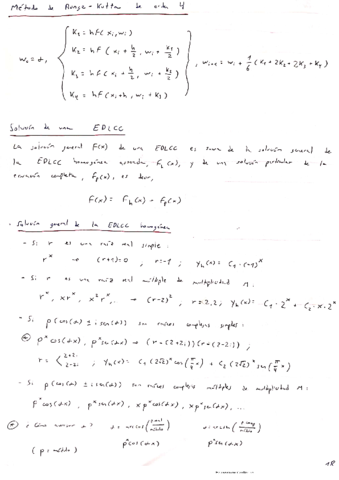 Método de Runge-Kutta de orden 4
K₁ = hF(xᵢ, wᵢ)
K₂ = hF(xᵢ + h/2, wᵢ + K₁/2)
w₀ = α, K₃ = hF(xᵢ + h/2, wᵢ + K₂/2), wᵢ₊₁ = wᵢ + 1/6 (K₁ + 2K₂ + 2K₃ + K₄)
K₄ = hF(xᵢ + h, wᵢ + K₃)
Solución de una EDLCC
La solución general F(x) de una EDLCC es suma de la solución general de
la EDLCC homogénea asociada, Fₕ(x), y de una solución particular de la
ecuación completa, Fₚ(x), es decir,
F(x) = Fₕ(x) + Fₚ(x)
Solución general de la EDLCC homogénea
- Si r es una raíz real simple:
rˣ → (r+1)=0, r=-1; yₕ(x) = C₁·(-1)ˣ
- Si r es una raíz real múltiple de multiplicidad M:
rˣ, xrˣ, x²rˣ, ... → (r-2)², r=2,2; yₕ(x) = C₁·2ˣ + C₂·x·2ˣ
- Si ρ(cos(α) ± i sen(α)) son raíces complejas simples:
ρˣcos(αx), ρˣsen(αx) → (r-(2+2i))(r-(2-2i));
r = { 2+2i 2-2i; yₕ(x) = C₁(2√2)ˣcos(π/4 x) + C₂(2√2)ˣsen(π/4 x)
- Si ρ(cos(α) ± i sen(α)) son raíces complejas múltiples de multiplicidad M:
ρˣcos(αx), ρˣsen(αx), xρˣcos(αx), xρˣsen(αx), ...
¿Cómo conocer α? α = arccos(ρ real/módulo) α = arcsen(ρ imag/módulo)
(ρ = módulo) ρˣcos(αx) ρˣsen(αx)